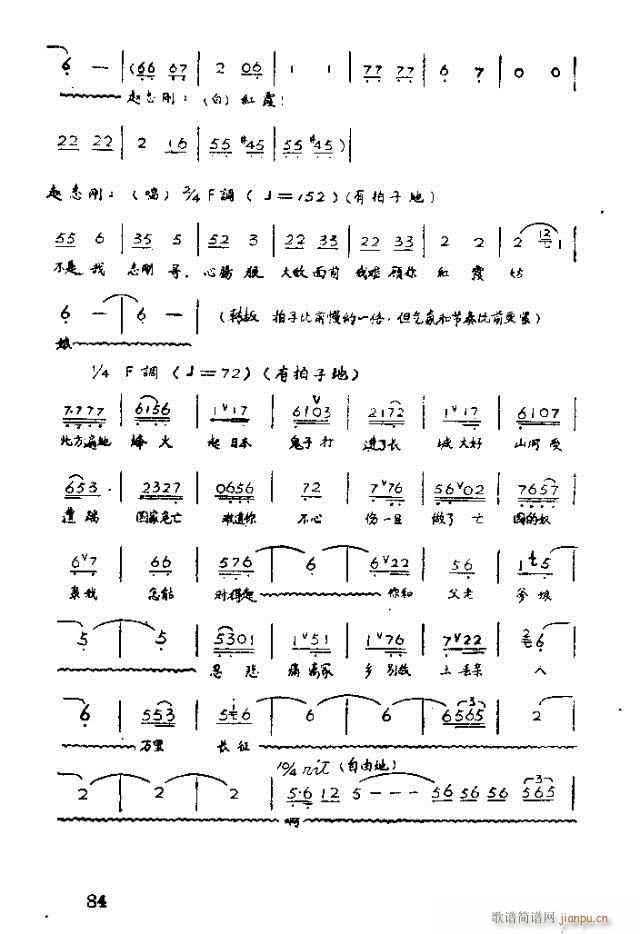 6 — | (66 67 | 2 06 | 1 1 | 77 77 | 6 7 | 0 0 |
赵志刚：(白)紅霞！
22 22 | 2 16 | 55 #45 | 55 #45 ) |
赵志刚：(唱) 2/4 F調 (♩=152) (有拍子地)
55 6 | 35 5 | 52 3 | 22 33 | 22 33 | 2 2 | 2 1
不是我 志刚哥，心腸狠 大敌面前 我难顾你 紅霞姑
6 — | 6 — | (转板 拍子比前慢的一倍，但气氛和节奏比前要紧)
娘
1/4 F調 (♩=72) (有拍子地)
7.777 | 6156 | 1∨17 | 6103 | 2172 | 1∨17 | 6107
北方遍地 烽火 起日本 鬼子打 进了长 城大好 山河受
653 | 2327 | 0656 | 72 | 7∨76 | 56∨02 | 7657
遭踏 国家危亡 难道你 不心 伤一旦 做了亡 国的奴
6∨7 | 66 | 576 | 6 | 6∨22 | 56 | 1 5
隶我 怎能 对得起 你和 父老 爹娘
5 | 5 | 5301 | 1∨51 | 1∨76 | 7∨22 | 6
忍悲 痛离家 乡别故 土丢亲 人
6 | 553 | 5 6 | 6 | 6 | 6565 | 2
万里 长征
10/4 rit (自由地)
2 | 2 | 2 | 5·6 12 5 — — — 56 56 56 565
啊
84
歌谱简谱网
jianpu.cn